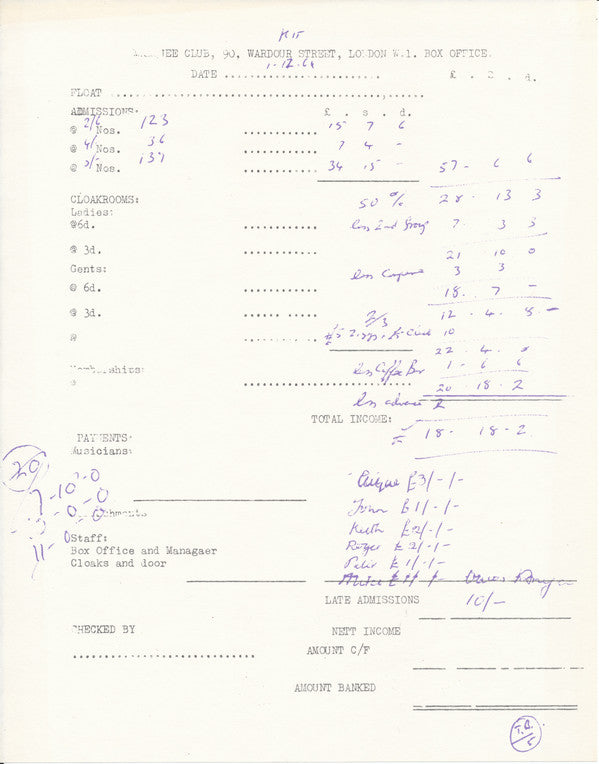 NEE CLUB, 90, WARDOUR STREET, LONDON W.1. BOX OFFICE.
DATE
£ . s . d.
FLOAT
ADMISSIONS: £ . s . d.
@ 2/6 Nos. 123 15 7 6
@ 4/ Nos. 36 7 4 -
@ 5/- Nos. 139 34 15 - 57 - 6 6
CLOAKROOMS: 50 % 28 . 13 3
Ladies:
@6d. less 2nd Group 7 . 3 3
@ 3d. 21 10 0
Gents: less 3 3
@ 6d. 18 . 7 -
@ 3d. 2/3 12 . 4 . 8 -
@ 10
22 . 4 . 8
Memberships: less Coffee Bar 1 - 6 6
20 18 - 2
less advance 2
TOTAL INCOME: 18 - 18 - 2
PAYMENTS:
Musicians:
29
7-10-0
£3/-/-
John £1/-/-
Keith £2/-/-
Staff: Roger £2/-/-
Box Office and Managaer
Cloaks and door Peter £1/-/-
LATE ADMISSIONS 10/-
CHECKED BY NETT INCOME
AMOUNT C/F
AMOUNT BANKED